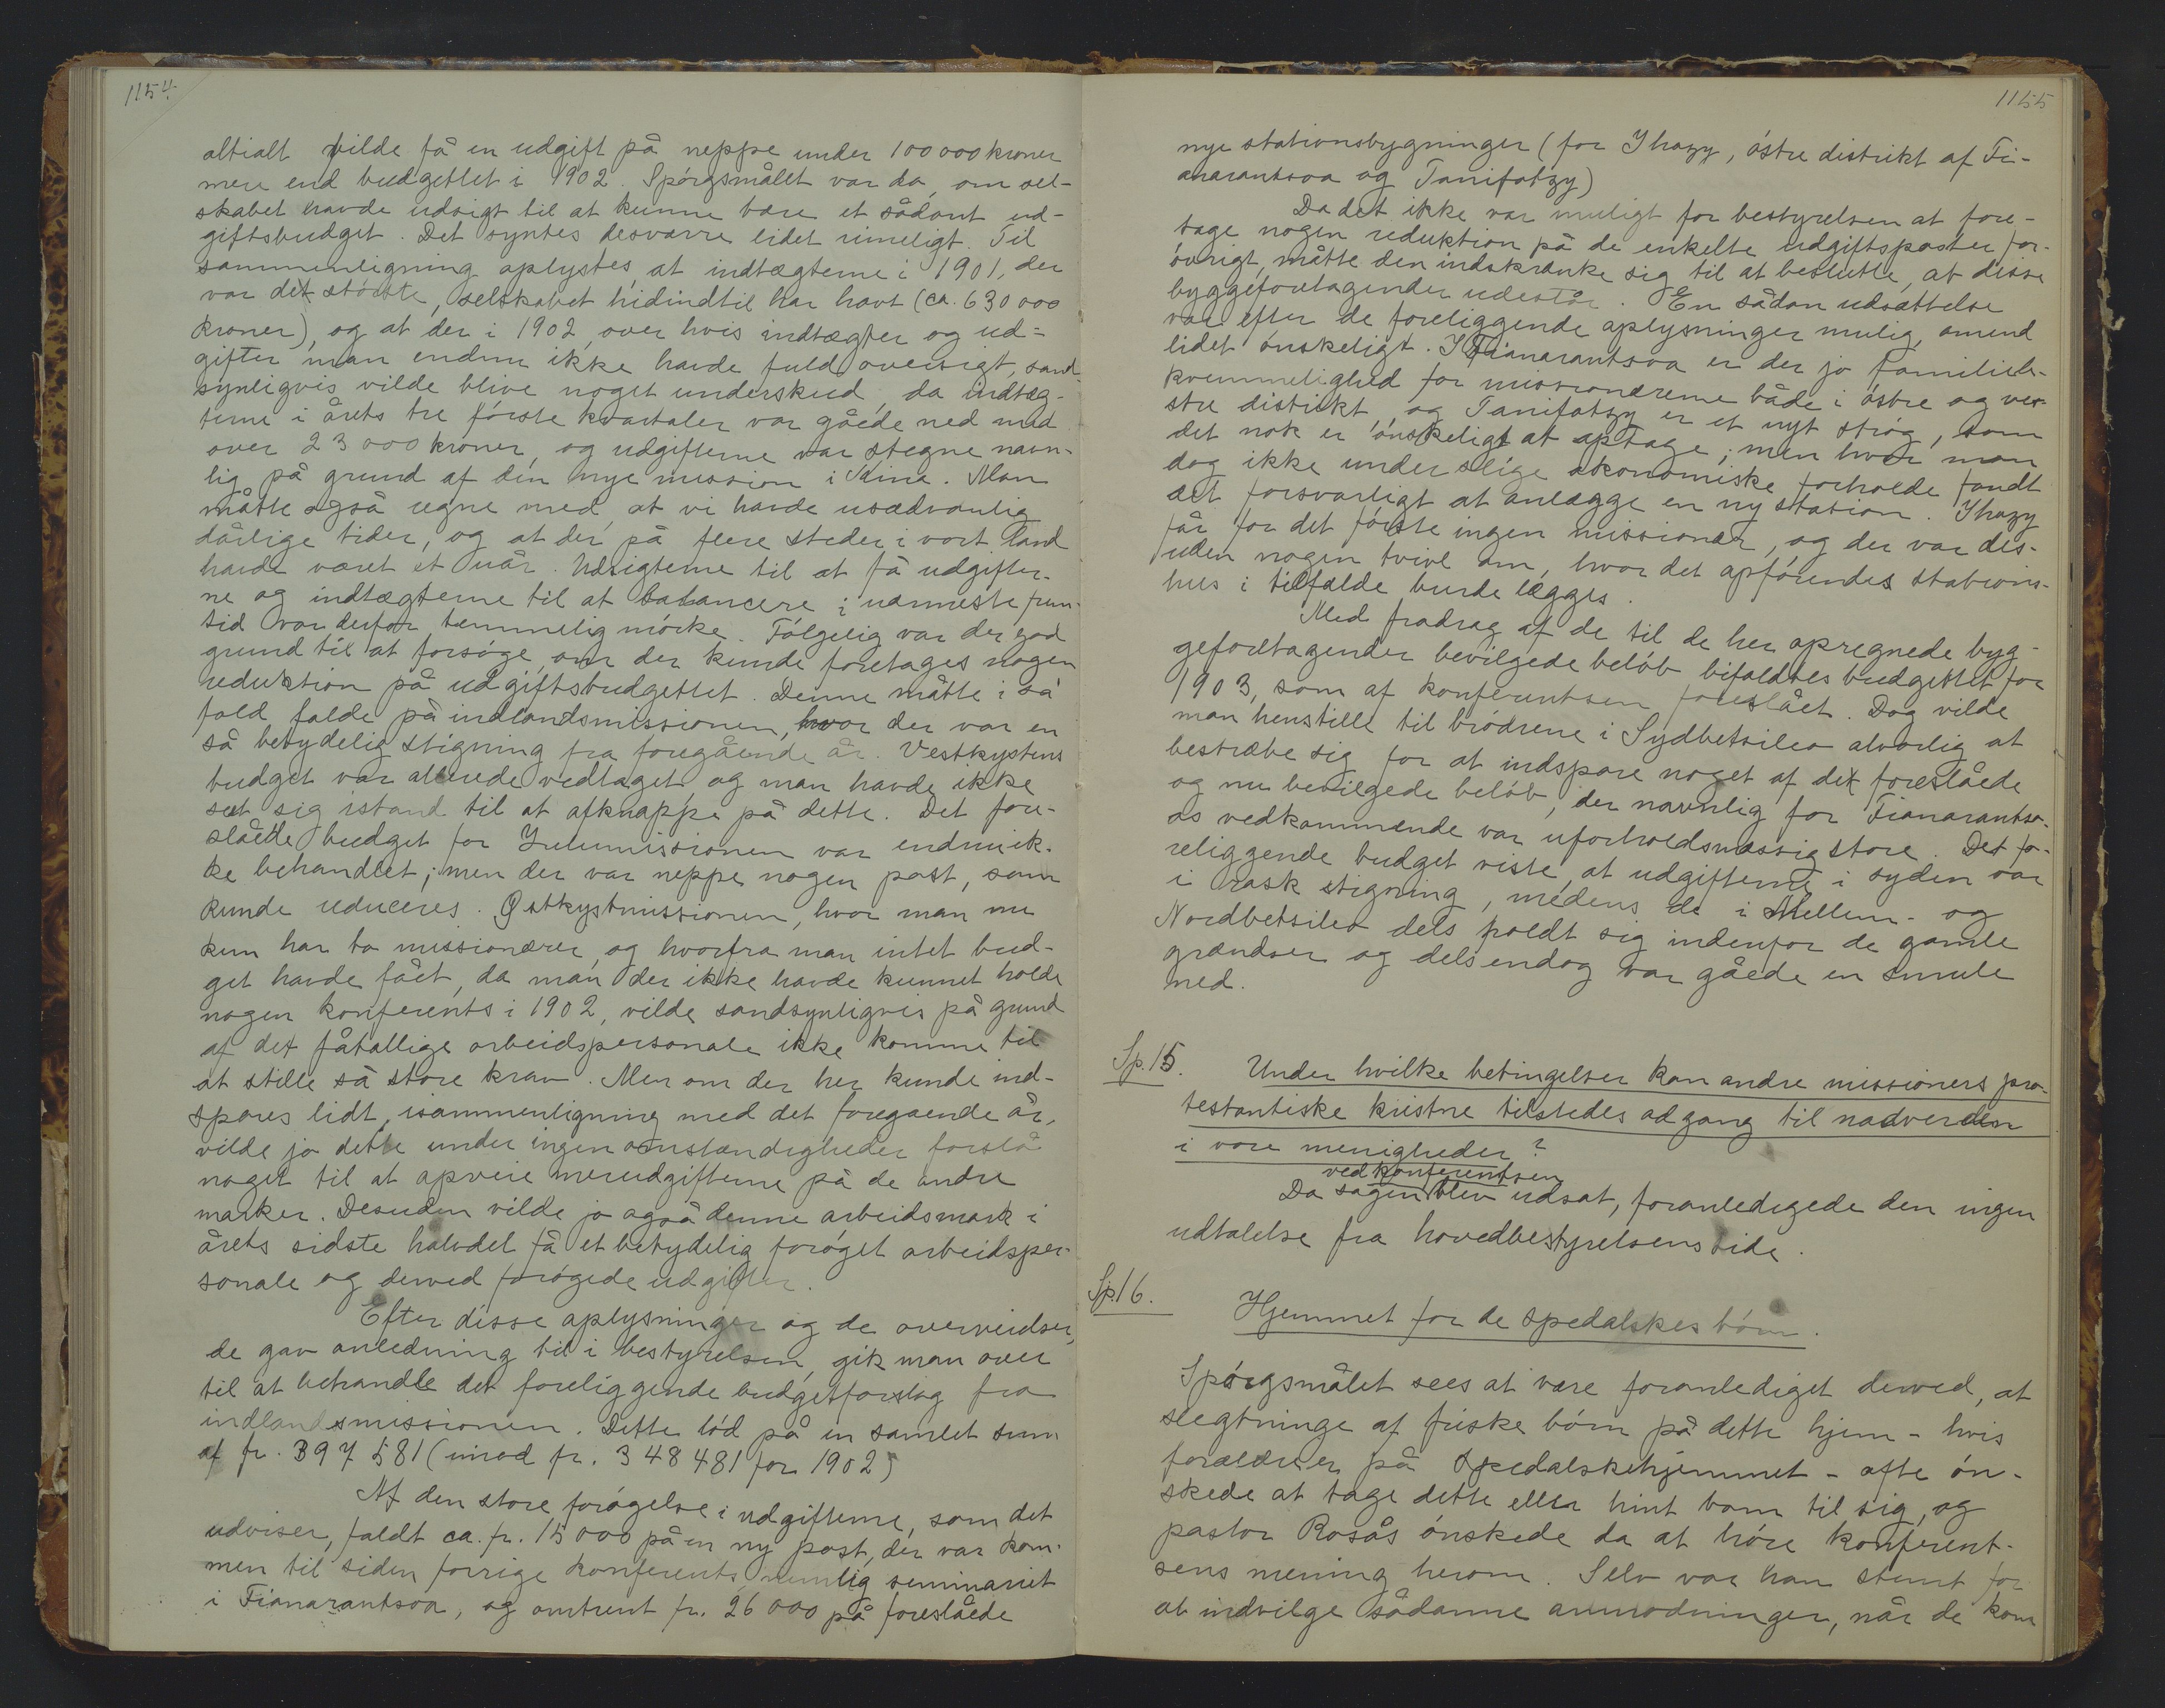 1154
altialt vilde få en udgift på neppe under 100 000 kroner
mere end budgettet i 1902. Spörgsmålet var da, om sel-
skabet havde udsigt til at kunne bære et sådant ud-
giftsbudget. Det syntes desværre lidet rimeligt. Til
sammenligning oplystes, at indtægterne i 1901, der
var det störste, selskabet hidindtil har havt (ca. 630 000
kroner), og at der i 1902, over hvis indtægter og ud-
gifter man endnu ikke havde fuld oversigt, sand-
synligvis vilde blive noget underskud, da indtæg-
terne i årets tre förste kvartaler var gåede ned med
over 23 000 kroner, og udgifterne var stegne navn-
lig på grund af den nye mission i Kina. Man
måtte også regne med, at vi havde usædvanlig
dårlige tider, og at der på flere steder i vort land
havde været et uår. Udsigterne til at få udgifter-
ne og indtægterne til at balancere i nærmeste frem-
tid var derfor temmelig mörke. Fölgelig var der god
grund til at forsöge, om der kunde foretages nogen
reduktion på udgiftsbudgettet. Denne måtte i så
fald falde på indlandsmissionen, hvor der var en
så betydelig stigning fra foregående år. Vestkystens
budget var allerede vedtaget, og man havde ikke
set sig istand til at afknappe på dette. Det fore-
slåede budget for Zulumissionen var endnu ik-
ke behandlet; men der var neppe nogen post, som
kunde reduceres. Østkystmissionen, hvor man nu
kun har to missionærer, og hvorfra man intet bud-
get havde fået, da man der ikke havde kunnet holde
nogen konferents i 1902, vilde sandsynligvis på grund
af det fåtallige arbeidspersonale ikke komme til
at stille så store krav. Men om der her kunde ind-
spares lidt, isammenligning med det foregaende år,
vilde jo dette under ingen omstændigheder forslå
noget til at opveie merudgifterne på de andre
marker. Desuden vilde jo også denne arbeidsmark i
årets sidste halvdel få et betydelig foröget arbeidsper-
sonale og derved forögede udgifter.
Efter disse oplysninger og de overveielser,
de gav anledning til i bestyrelsen, gik man over
til at behandle det foreliggende budgetforslag fra
indlandsmissionen. Dette löd på en samlet sum
af fr. 397 581 (imod fr. 348 481 for 1902)
Af den store forögelse i udgifterne, som det
udviser, faldt ca. fr. 15 000 på en ny post, der var kom-
men til siden forrige konferents nemlig seminariet
i Fianarantsoa, og omtrent fr. 26 000 på foreslåede
1155
nye stationsbygninger (for Ihazy, östre distrikt af Fi-
anarantsoa og Tanifotzy)
Da det ikke var muligt for bestyrelsen at fore-
tage nogen reduktion på de enkelte udgiftsposter for-
övrigt, måtte den indskrænke sig til at beslutte, at disse
byggeforetagender udestår. En sådan udsættelse
var efter de foreliggende oplysninger mulig, omend
lidet önskeligt. I Fianarantsoa er der jo familiebe-
kvemmelighed for missionærerne både i östre og ves-
stre distrikt, og Tanifotzy er et nyt strög, som
det nok er önskeligt at optage; men hvor man
dog ikke under slige ökonomiske forholde fandt
det forsvarligt at anlægge en ny station. Ihazy
får for det förste ingen missionær, og der var des-
uden nogen tvivl om, hvor det opförendes stations-
hus i tilfælde burde lægges.
Med fradrag af de til de her opregnede byg-
geforetagender bevilgede belöb bifaldtes budgettet for
1903, som af konferentsen foreslået. Dog vilde
man henstille til brödrene i Sydbetsileo alvorlig at
bestræbe sig for at indspare noget af det foreslåede
og nu bevilgede belöb, der navnlig for Fianarantso-
as vedkommende var uforholdsmæssig store. Det fo-
religgende budget viste, at udgifterne i syden var
i rask stigning, medens de i Mellem- og
Nordbetsileo dels holdt sig indenfor de gamle
grændser og dels endog var gåede en smule
ned.
Sp. 15.
Under hvilke betingelser kan andre missioners pro-
testantiske kristne tilstedes adgang til nadverden
i vore menigheder?
ved konferentsen
Da sagen blev udsat, foranledigede den ingen
udtalelse fra hovedbestyrelsens side.
Sp. 16.
Hjemmet for de spedalskes börn.
Spörgsmålet sees at være foranlediget derved, at
slegtninge af friske börn på dette hjem – hvis
forældre er på Spedalskehjemmet – ofte ön-
skede at tage dette eller hint barn til sig, og
pastor Rosås önskede da at höre konferent-
sens mening herom. Selv var han stemt for
at indvilge sådanne anmodninger, når de kom